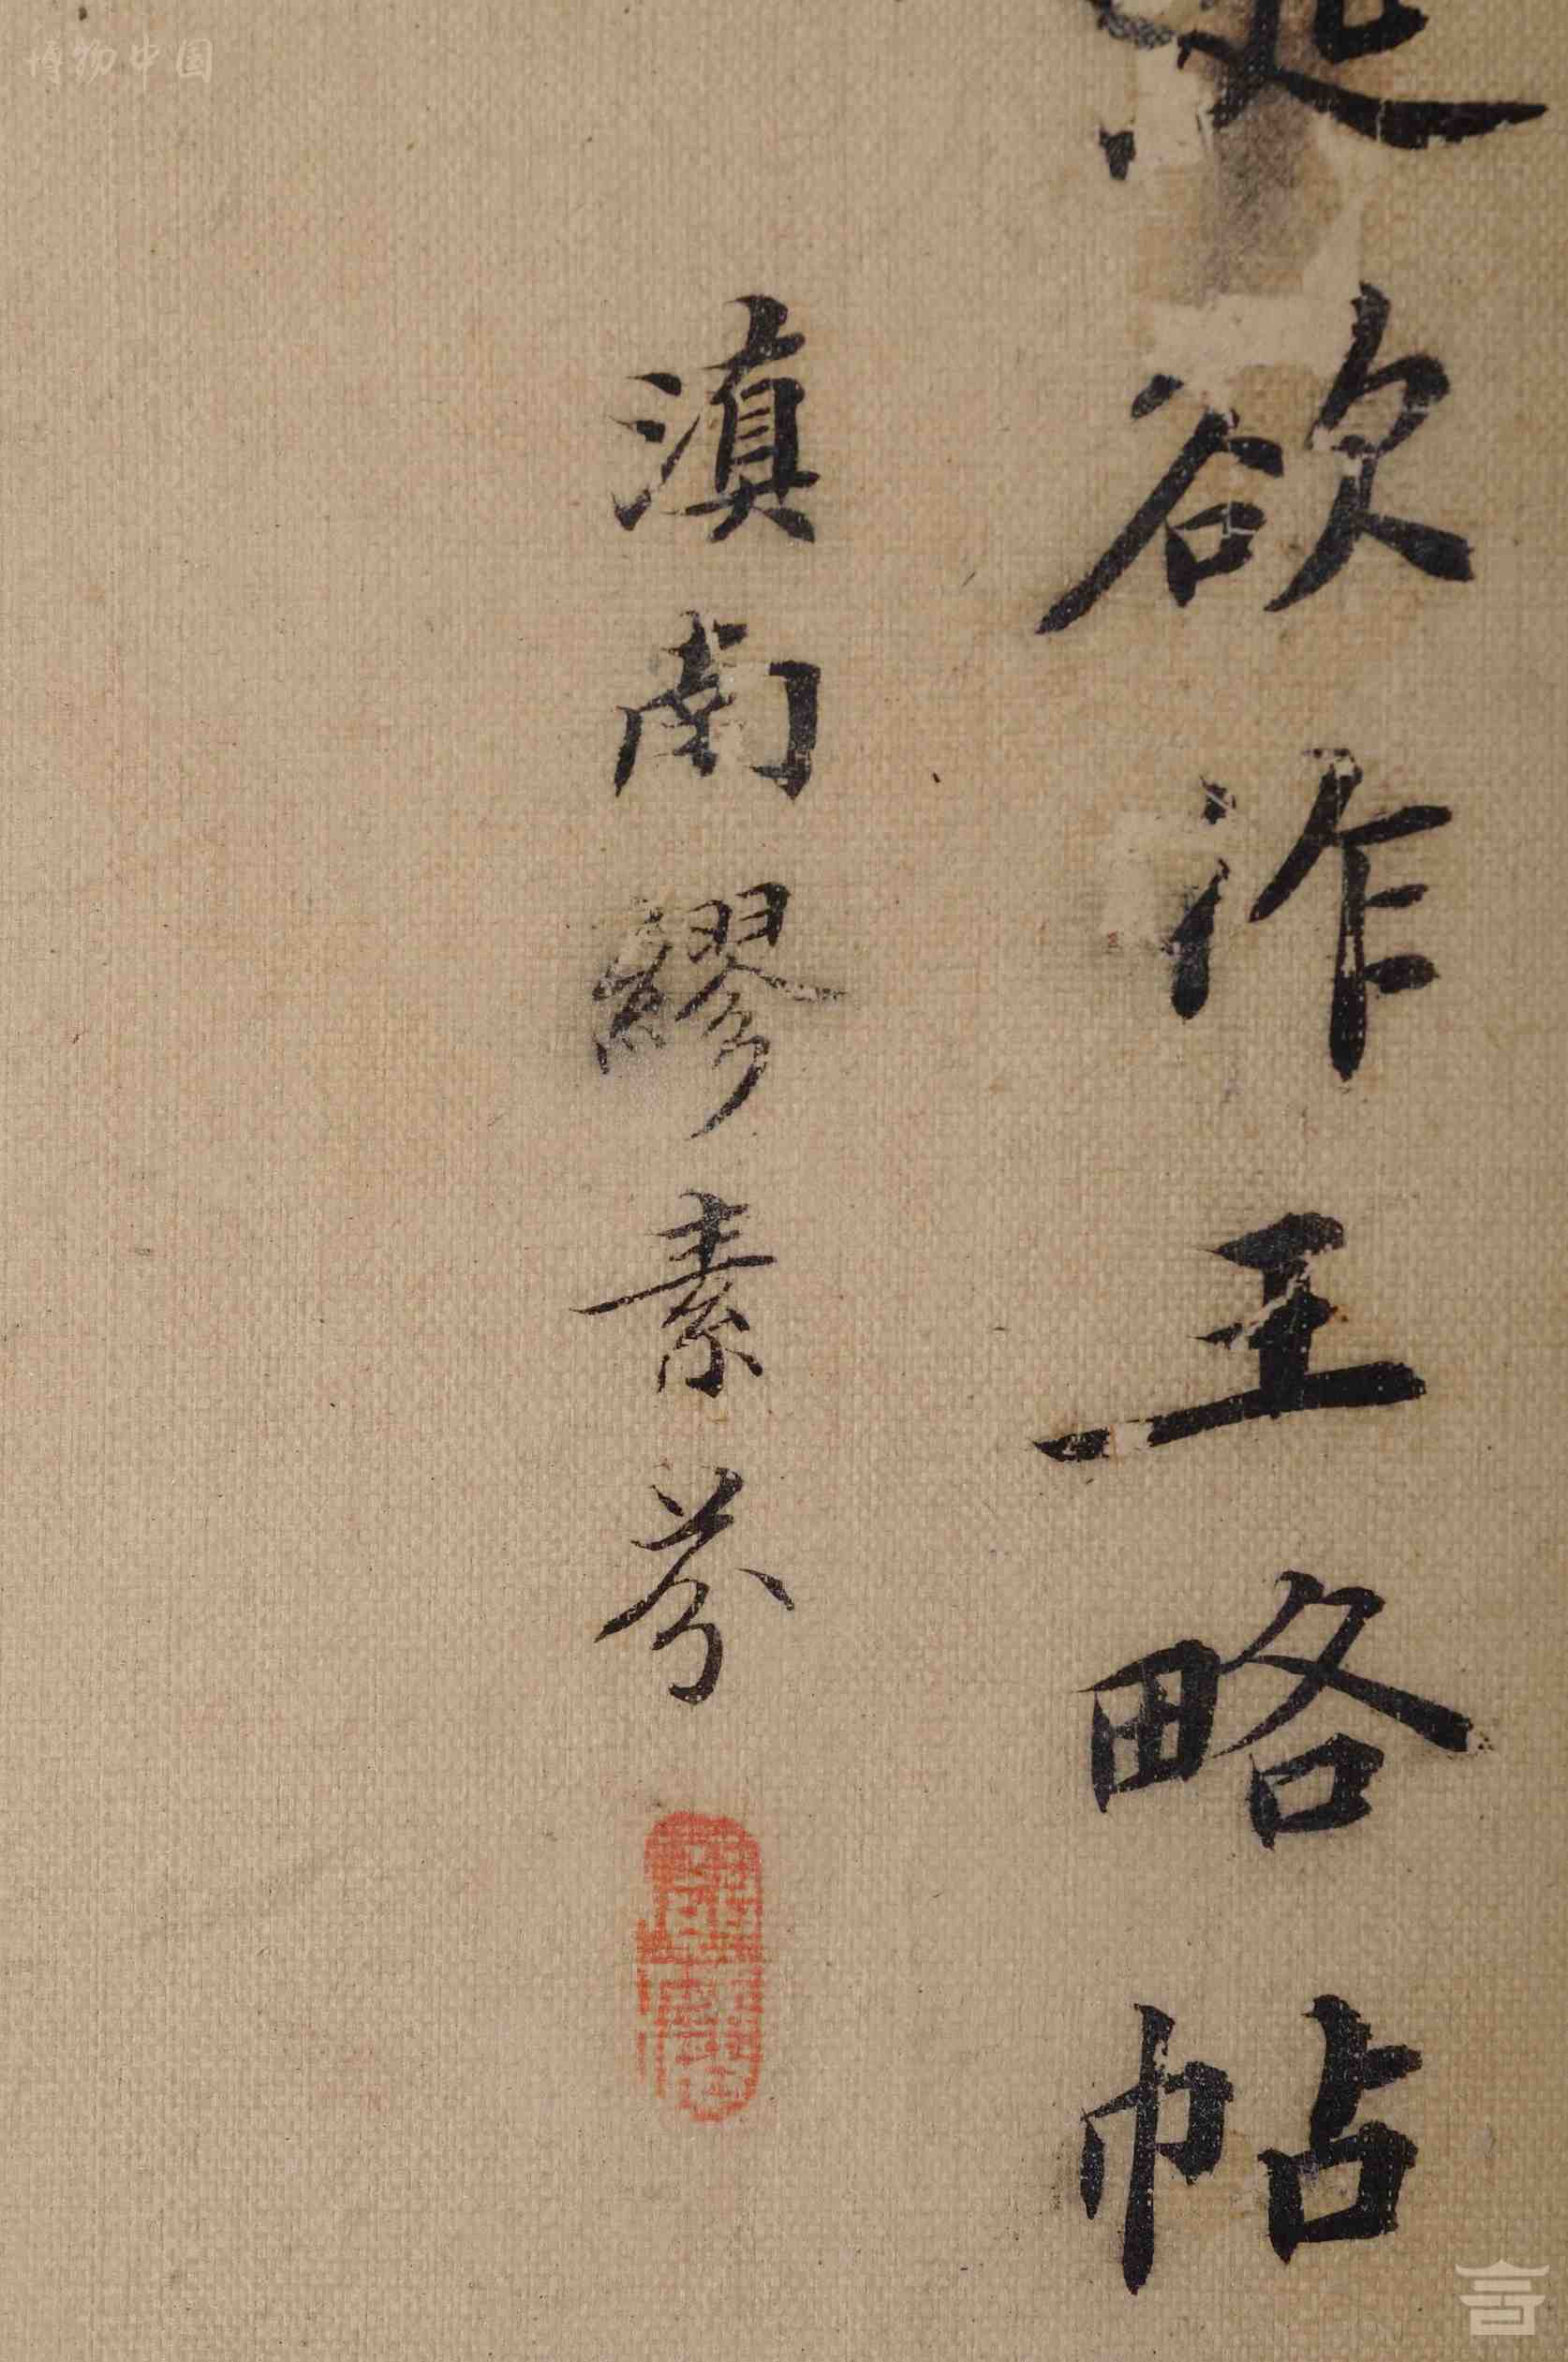 欲作王略帖
滇南繆素芬
博物中国